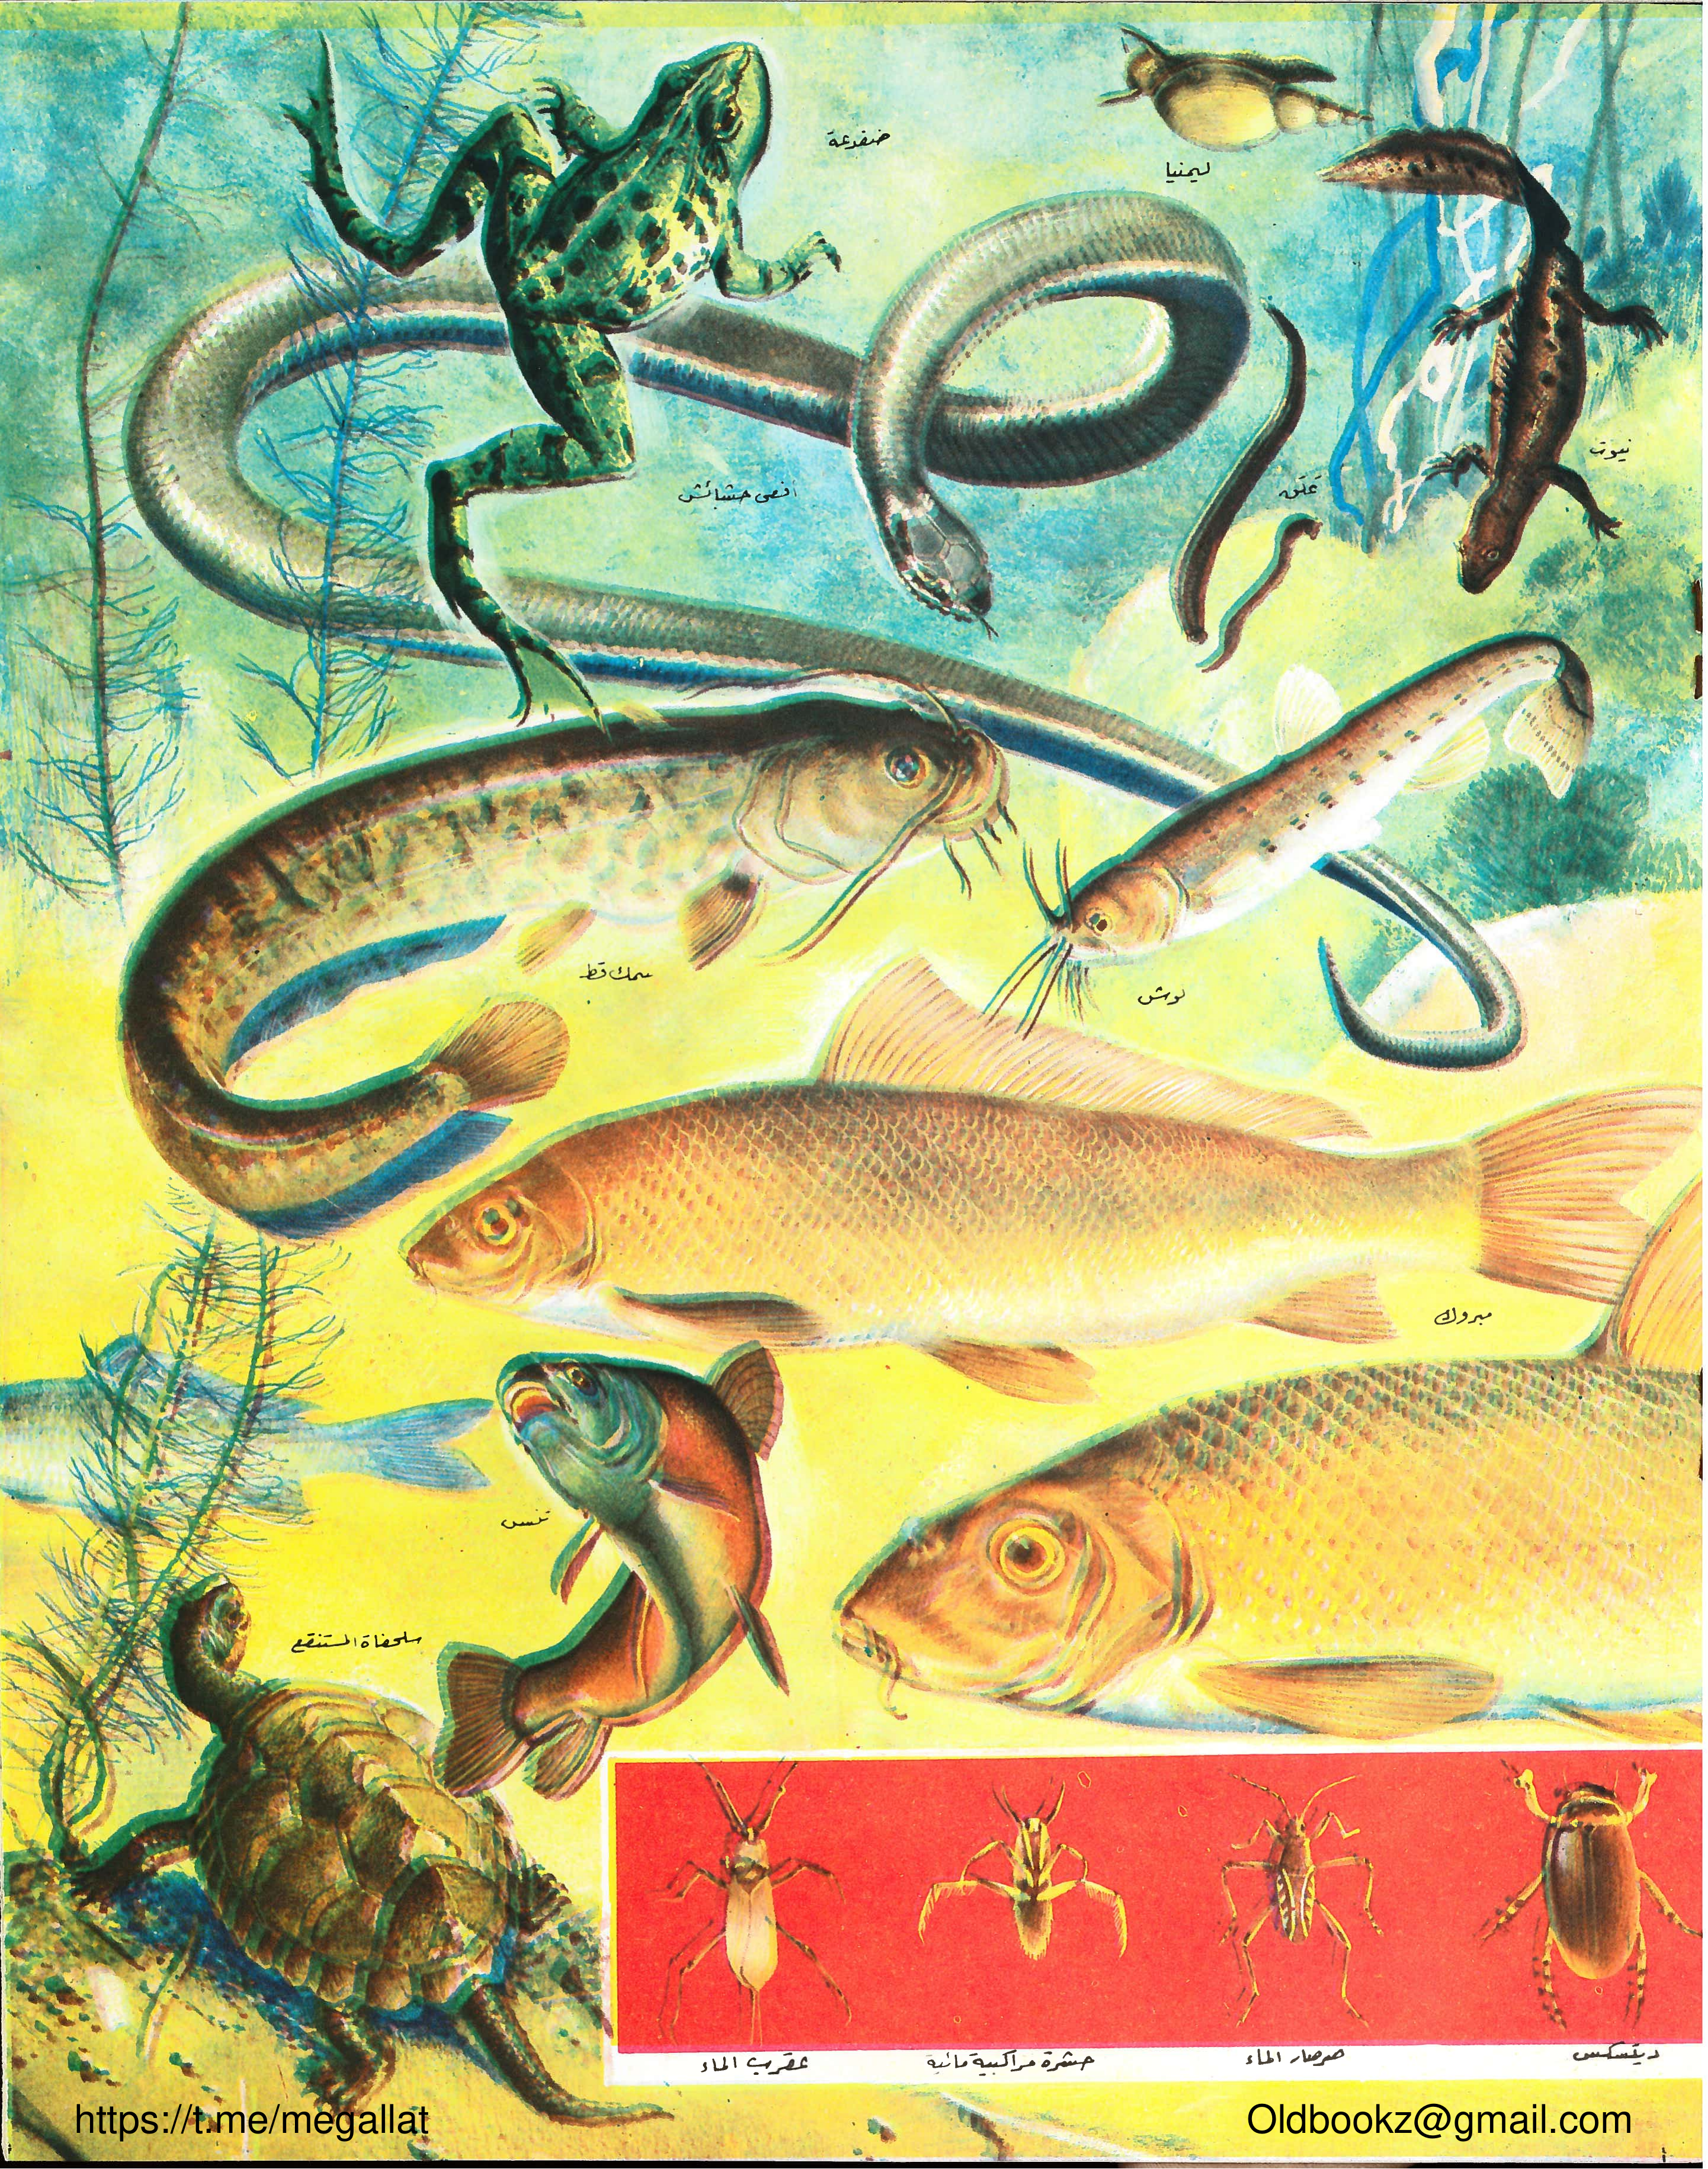 ضفدعة
ليمنيا
نيوت
علق
افعى حشائش
سمك قط
لوش
مبروك
تنس
سلحفاة المستنقع
ديتسكس
صرصار الماء
حشرة مراكبية مائية
عقرب الماء
https://t.me/megallat
Oldbookz@gmail.com